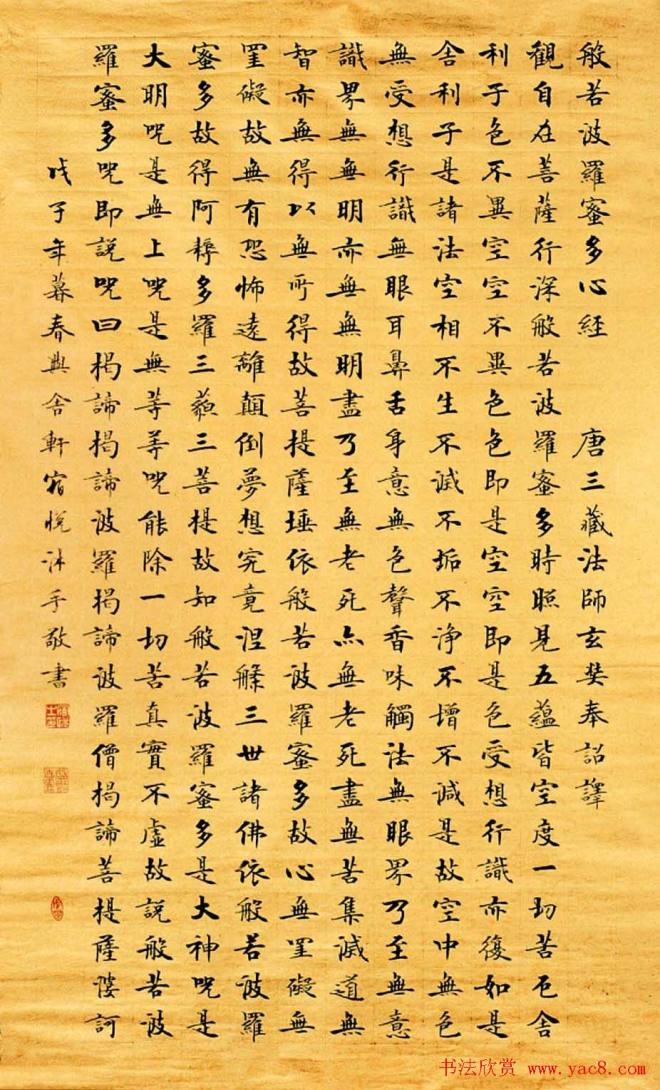 般若波羅蜜多心經 唐三藏法師玄奘奉詔譯
觀自在菩薩行深般若波羅蜜多時照見五蘊皆空度一切苦厄舍
利子色不異空空不異色色即是空空即是色受想行識亦復如是
舍利子是諸法空相不生不滅不垢不淨不增不減是故空中無色
無受想行識無眼耳鼻舌身意無色聲香味觸法無眼界乃至無意
識界無無明亦無無明盡乃至無老死亦無老死盡無苦集滅道無
智亦無得以無所得故菩提薩埵依般若波羅蜜多故心無罣礙無
罣礙故無有恐怖遠離顛倒夢想究竟涅槃三世諸佛依般若波羅
蜜多故得阿耨多羅三藐三菩提故知般若波羅蜜多是大神呪是
大明呪是無上呪是無等等呪能除一切苦真實不虛故說般若波
羅蜜多呪即說呪曰揭諦揭諦波羅揭諦波羅僧揭諦菩提薩婆訶
戊子年暮春舍軒宿悅沐手敬書
书法欣赏 www.yac8.com